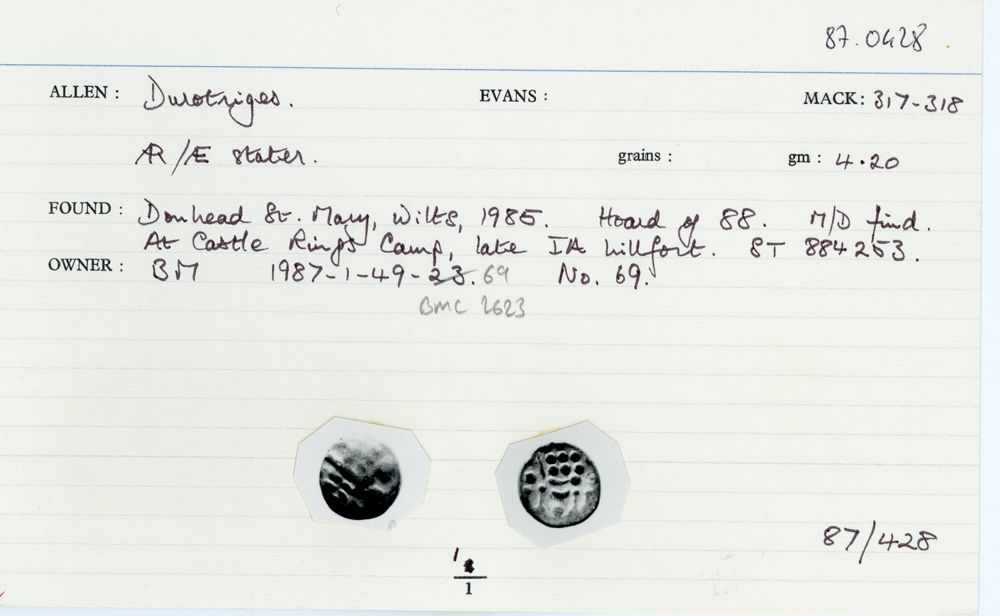 87.0428.
ALLEN: Durotriges. EVANS: MACK: 317-318
AR/Æ stater. grains: gm: 4.20
FOUND: Donhead St. Mary, Wilts, 1985. Hoard of 88. M/D find.
At Castle Rings Camp, late IA hillfort. ST 884253.
OWNER: BM 1987-1-49-23.69 No. 69.
BMC 2623
87/428
1
1